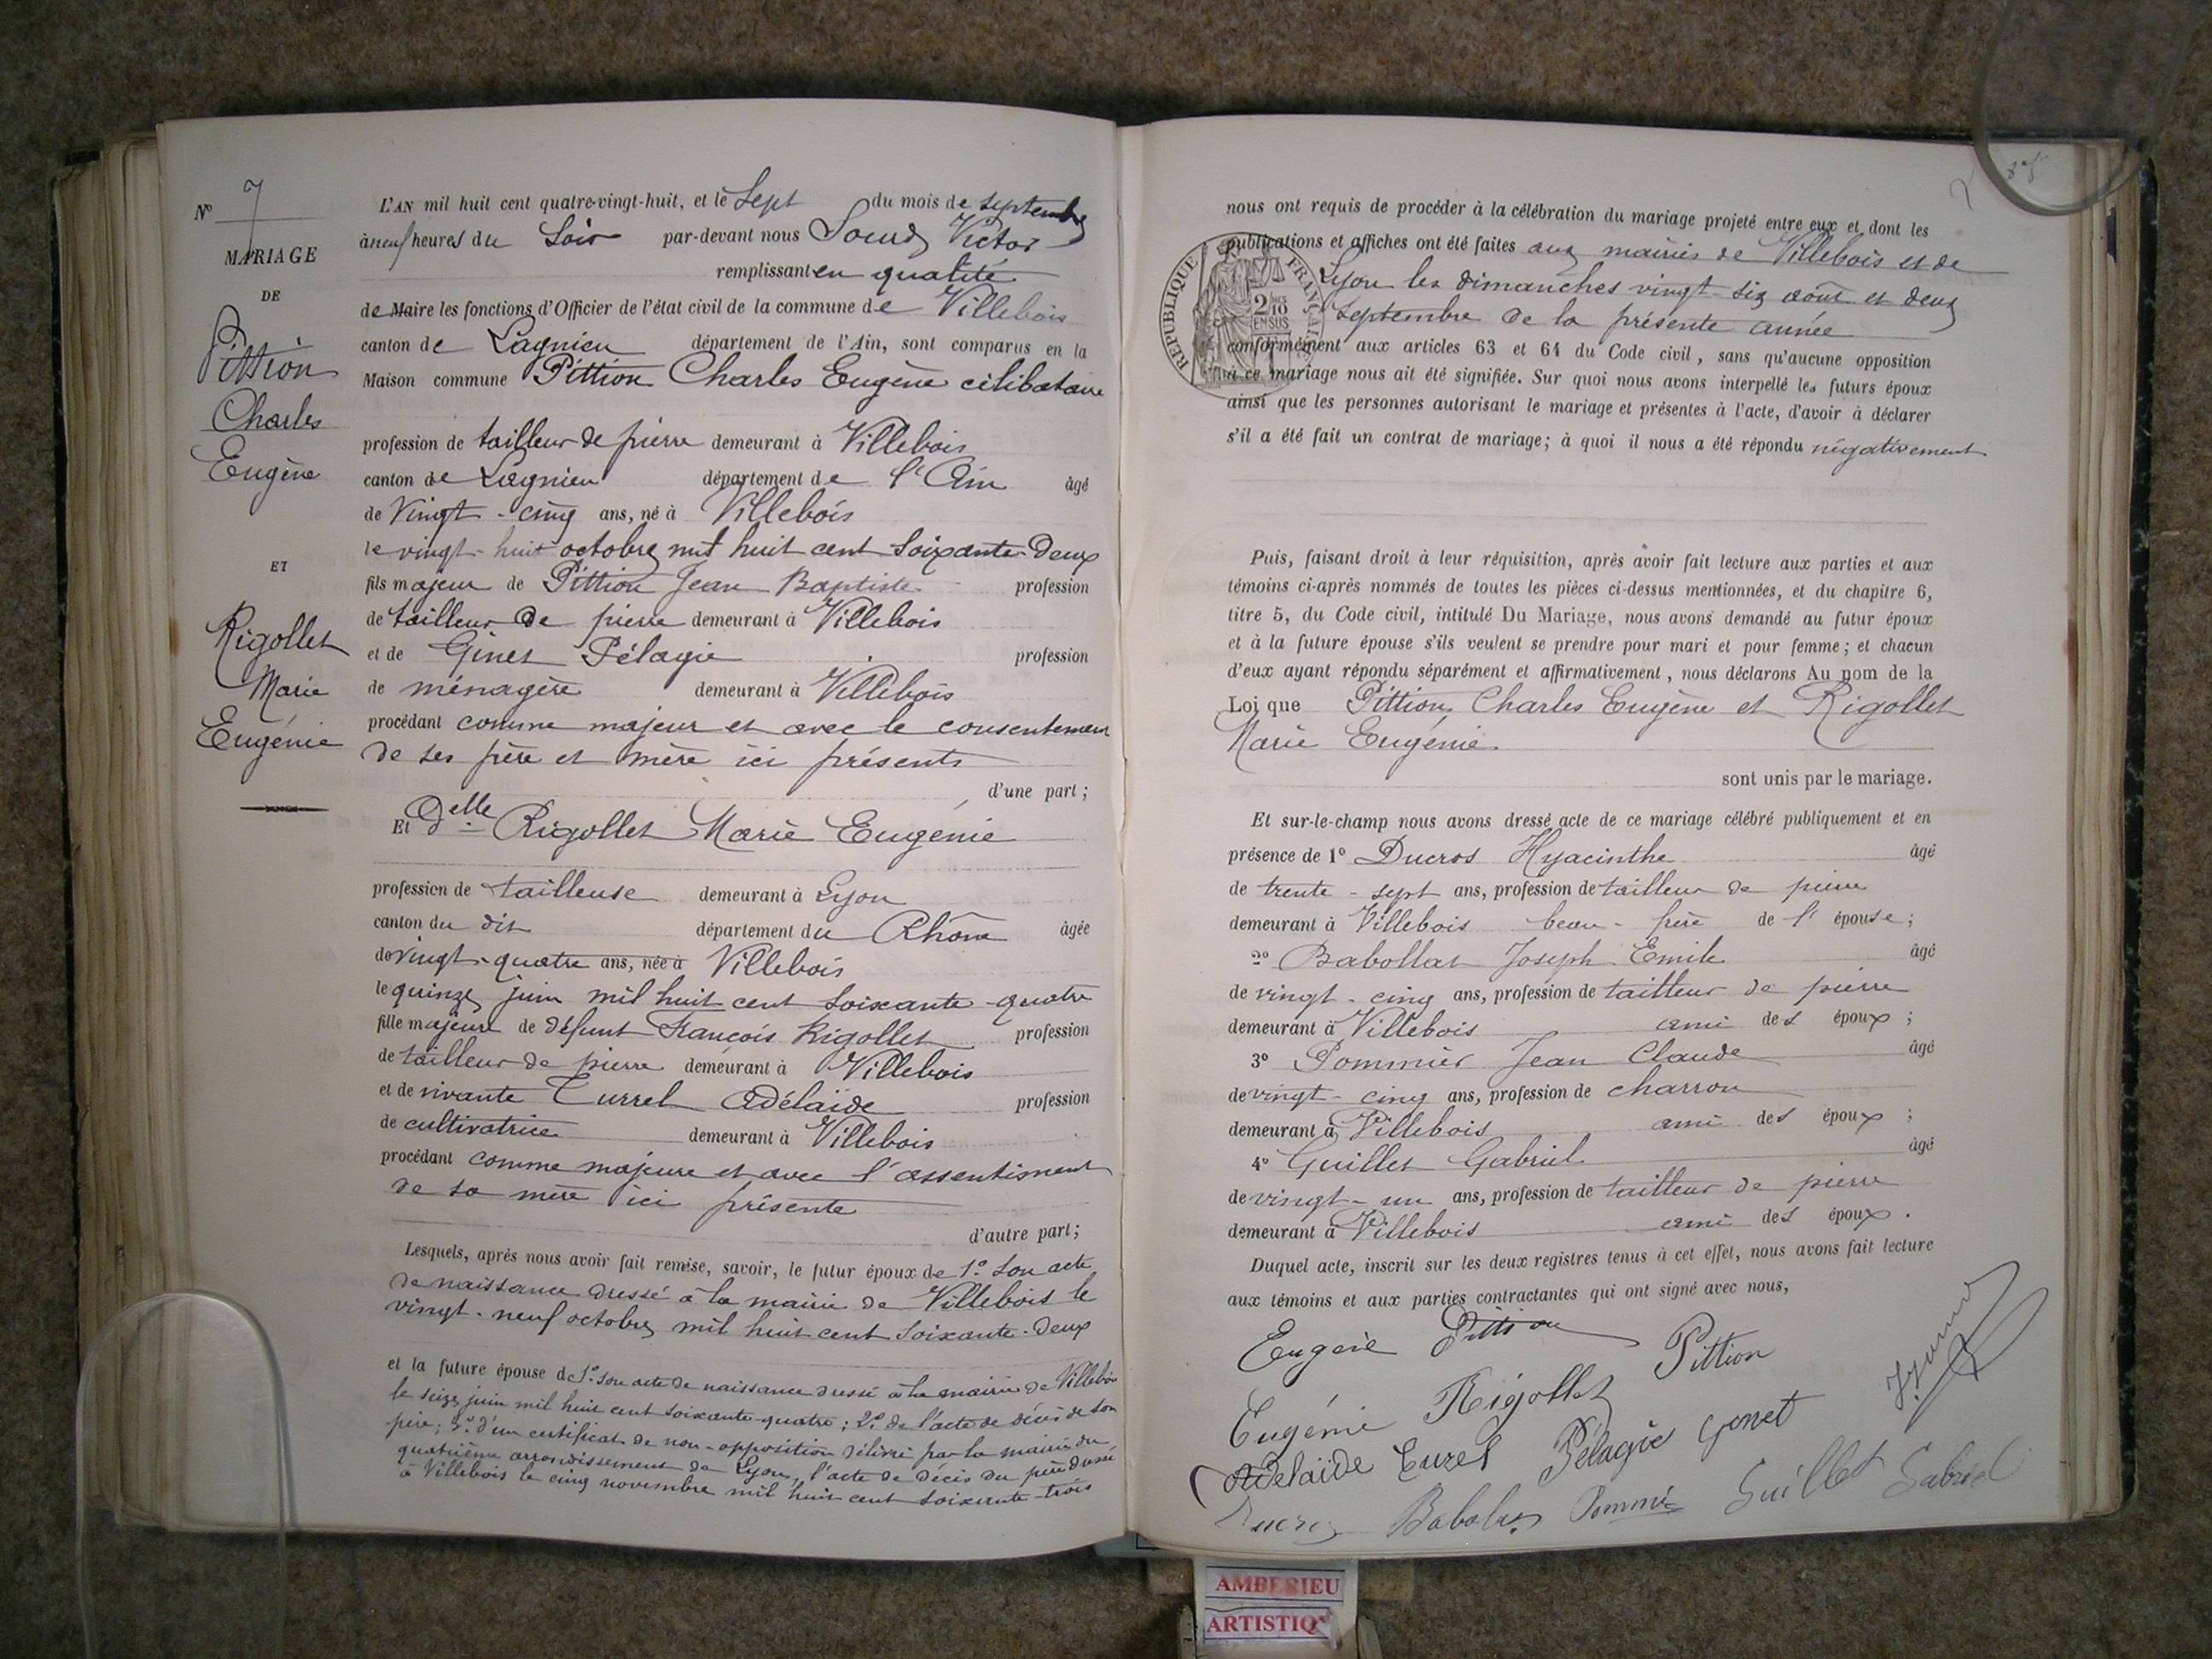 N° 7
MARIAGE
DE
Pittion
Charles
Eugène
ET
Rigollet
Marie
Eugénie
L'AN mil huit cent quatre-vingt-huit, et le Sept du mois de septembre
à neuf heures du Soir par-devant nous Sourd Victor
remplissant en qualité
de Maire les fonctions d'Officier de l'état civil de la commune de Villebois
canton de Lagnieu département de l'Ain, sont comparus en la
Maison commune Pittion Charles Eugène célibataire
profession de tailleur de pierre demeurant à Villebois
canton de Lagnieu département de l'Ain âgé
de Vingt-cinq ans, né à Villebois
le vingt-huit octobre mil huit cent soixante-deux
fils majeur de Pittion Jean Baptiste profession
de tailleur de pierre demeurant à Villebois
et de Ginet Pélagie profession
de ménagère demeurant à Villebois
procédant comme majeur et avec le consentement
de ses père et mère ici présents
d'une part;
Et Delle Rigollet Marie Eugénie
profession de tailleuse demeurant à Lyon
canton du dit département du Rhône âgée
de vingt-quatre ans, née à Villebois
le quinze juin mil huit cent soixante-quatre
fille majeure de défunt François Rigollet profession
de tailleur de pierre demeurant à Villebois
et de vivante Turrel Adélaïde profession
de cultivatrice demeurant à Villebois
procédant comme majeure et avec l'assentiment
de sa mère ici présente
d'autre part;
Lesquels, après nous avoir fait remise, savoir, le futur époux de 1° son acte
de naissance dressé à la mairie de Villebois le
vingt-neuf octobre mil huit cent soixante-deux
et la future épouse de 1° son acte de naissance dressé à la mairie de Villebois
le seize juin mil huit cent soixante-quatre; 2° de l'acte de décès de son
père; 3° d'un certificat de non-opposition délivré par la mairie du
quatrième arrondissement de Lyon, l'acte de décès du père dressé
à Villebois le cinq novembre mil huit cent soixante-trois
nous ont requis de procéder à la célébration du mariage projeté entre eux et dont les
publications et affiches ont été faites aux mairies de Villebois et de
Lyon les dimanches vingt-six août et deux
septembre de la présente année
conformément aux articles 63 et 64 du Code civil, sans qu'aucune opposition
à ce mariage nous ait été signifiée. Sur quoi nous avons interpellé les futurs époux
ainsi que les personnes autorisant le mariage et présentes à l'acte, d'avoir à déclarer
s'il a été fait un contrat de mariage; à quoi il nous a été répondu négativement
REPUBLIQUE FRANÇAISE
2/10 EN SUS
Puis, faisant droit à leur réquisition, après avoir fait lecture aux parties et aux
témoins ci-après nommés de toutes les pièces ci-dessus mentionnées, et du chapitre 6,
titre 5, du Code civil, intitulé Du Mariage, nous avons demandé au futur époux
et à la future épouse s'ils veulent se prendre pour mari et pour femme; et chacun
d'eux ayant répondu séparément et affirmativement, nous déclarons Au nom de la
Loi que Pittion Charles Eugène et Rigollet
Marie Eugénie
sont unis par le mariage.
Et sur-le-champ nous avons dressé acte de ce mariage célébré publiquement et en
présence de 1° Ducros Hyacinthe âgé
de trente-sept ans, profession de tailleur de pierre
demeurant à Villebois beau-frère de l'épouse;
2° Babollat Joseph Emile âgé
de vingt-cinq ans, profession de tailleur de pierre
demeurant à Villebois ami des époux;
3° Pommier Jean Claude âgé
de vingt-cinq ans, profession de charron
demeurant à Villebois ami des époux;
4° Guillet Gabriel âgé
de vingt-un ans, profession de tailleur de pierre
demeurant à Villebois ami des époux.
Duquel acte, inscrit sur les deux registres tenus à cet effet, nous avons fait lecture
aux témoins et aux parties contractantes qui ont signé avec nous,
Eugène Pittion
Pittion
Eugénie Rigollet
Adelaïde Turel Pélagie Ginet
Ducros Babolat Pommié Guillet Gabriel
AMBERIEU
ARTISTIQ